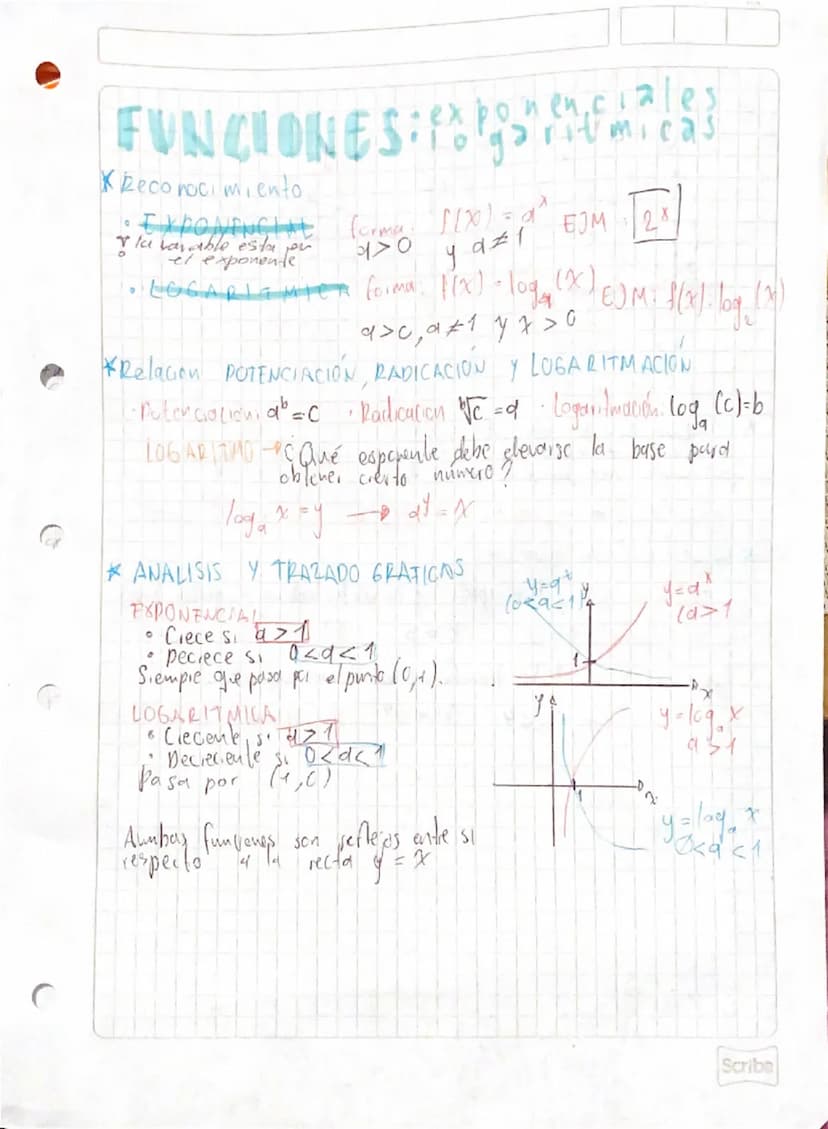 FUNCIONES: exponenciales
logaritmicas
* Reconocimiento
• EXPONENCIAL forma: f(x) = a^x EJM: 2^x
la variable esta en a>0 y a≠1
el exponente
• LOGARITMICA forma: f(x) = log_a (x) EJM: f(x): log_2 (x)
a>0, a≠1 y x>0
* Relación POTENCIACIÓN, RADICACIÓN Y LOGARITMACIÓN
· Potenciación: a^b=c · Radicación ᵇ√c = a · Logaritmación: log_a (c)=b
LOGARITMO → ¿Qué exponente debe elevarse la base para
obtener cierto número?
log_a x = y → a^y = x
* ANALISIS Y TRAZADO GRAFICAS
EXPONENCIAL
• Crece si a > 1
• Decrece si 0<a<1
Siempre que pasa por el punto (0,1).
y=a^x
(0<a<1)
y
y=a^x
(a>1
1
x
LOGARITMICA
• Creciente si a>1
• Decreciente si 0<a<1
Pasa por (1,0)
y
y=log_a x
a>1
1
x
y=log_a x
0<a<1
Aumbas funciones son reflejos entre si
respecto a la recta y = x
Scribe